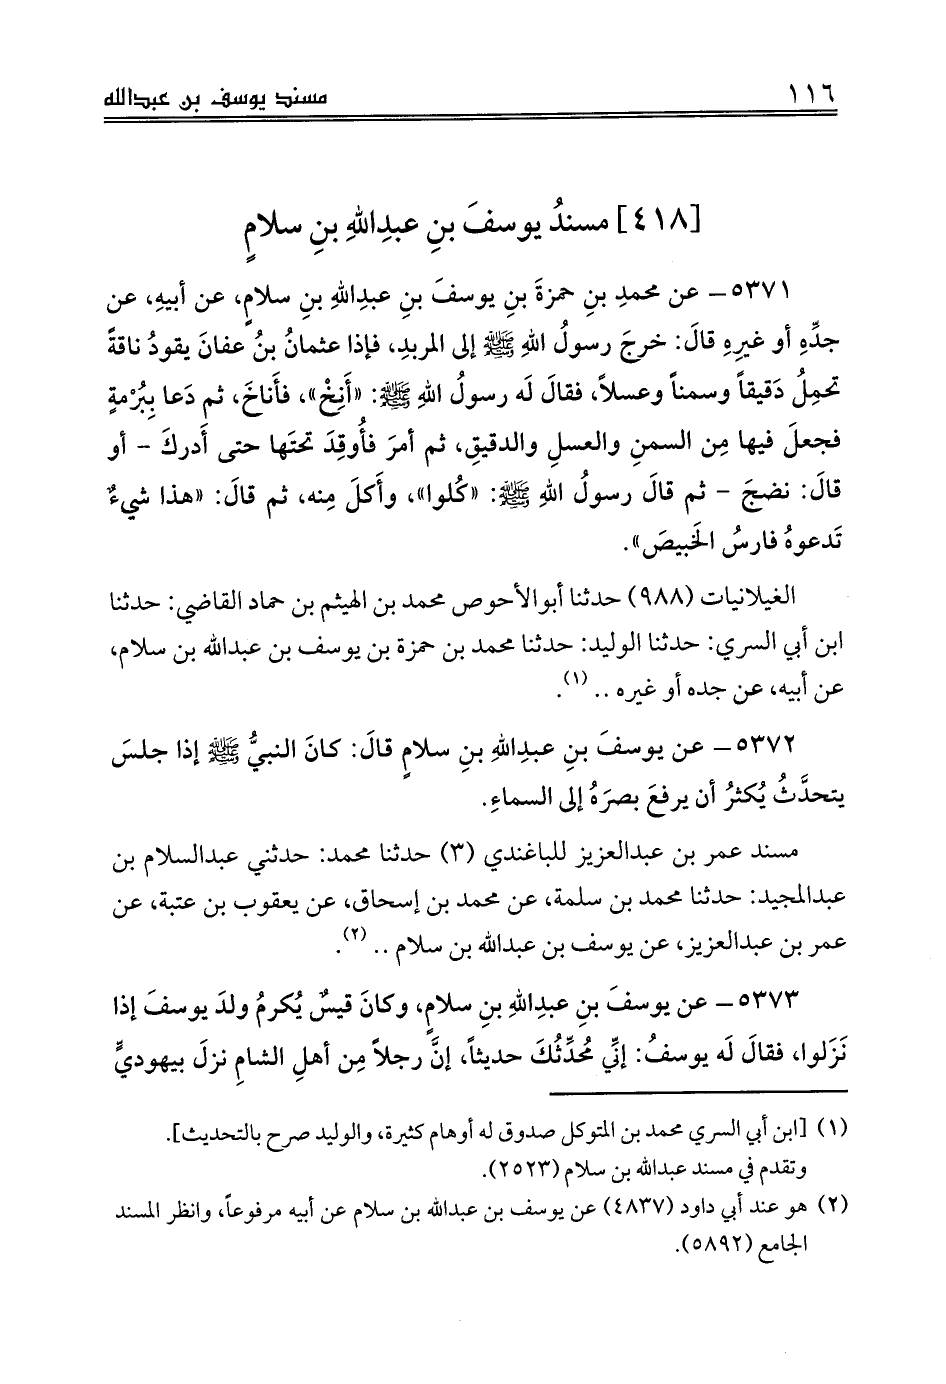 ١١٦ مسند يوسف بن عبدالله
[٤١٨] مسندُ يوسفَ بنِ عبدِاللهِ بنِ سلامٍ
٥٣٧١ــ عن محمدِ بنِ حمزةَ بنِ يوسفَ بنِ عبدِاللهِ بنِ سلامٍ، عن أبيهِ، عن
جدِّهِ أو غيرِهِ قالَ: خرجَ رسولُ اللهِ ﷺ إلى المربدِ، فإذا عثمانُ بنُ عفانَ يقودُ ناقةً
تحمِلُ دَقيقاً وسمناً وعسلاً، فقالَ له رسولُ اللهِ ﷺ: «أَنِخْ»، فأَناخَ، ثم دَعا بِبُرْمةٍ
فجعلَ فيها مِن السمنِ والعسلِ والدقيقِ، ثم أمرَ فأُوقِدَ تحتَها حتى أَدركَ - أو
قالَ: نضجَ - ثم قالَ رسولُ اللهِ ﷺ: «كُلوا»، وأَكلَ مِنه، ثم قالَ: «هذا شيءٌ
تَدعوهُ فارسُ الخَبيصَ».
الغيلانيات (٩٨٨) حدثنا أبوالأحوص محمد بن الهيثم بن حماد القاضي: حدثنا
ابن أبي السري: حدثنا الوليد: حدثنا محمد بن حمزة بن يوسف بن عبدالله بن سلام،
عن أبيه، عن جده أو غيره .. (١).
٥٣٧٢ــ عن يوسفَ بنِ عبدِاللهِ بنِ سلامٍ قالَ: كانَ النبيُّ ﷺ إذا جلسَ
يتحدَّثُ يُكثرُ أن يرفعَ بصرَهُ إلى السماءِ.
مسند عمر بن عبدالعزيز للباغندي (٣) حدثنا محمد: حدثني عبدالسلام بن
عبدالمجيد: حدثنا محمد بن سلمة، عن محمد بن إسحاق، عن يعقوب بن عتبة، عن
عمر بن عبدالعزيز، عن يوسف بن عبدالله بن سلام .. (٢).
٥٣٧٣ــ عن يوسفَ بنِ عبدِاللهِ بنِ سلامٍ، وكانَ قيسٌ يُكرمُ ولدَ يوسفَ إذا
نَزَلوا، فقالَ له يوسفُ: إنِّي مُحدِّثُكَ حديثاً، إنَّ رجلاً مِن أهلِ الشامِ نزلَ بيهوديٍّ
(١) [ابن أبي السري محمد بن المتوكل صدوق له أوهام كثيرة، والوليد صرح بالتحديث].
وتقدم في مسند عبدالله بن سلام (٢٥٢٣).
(٢) هو عند أبي داود (٤٨٣٧) عن يوسف بن عبدالله بن سلام عن أبيه مرفوعاً، وانظر المسند
الجامع (٥٨٩٢).